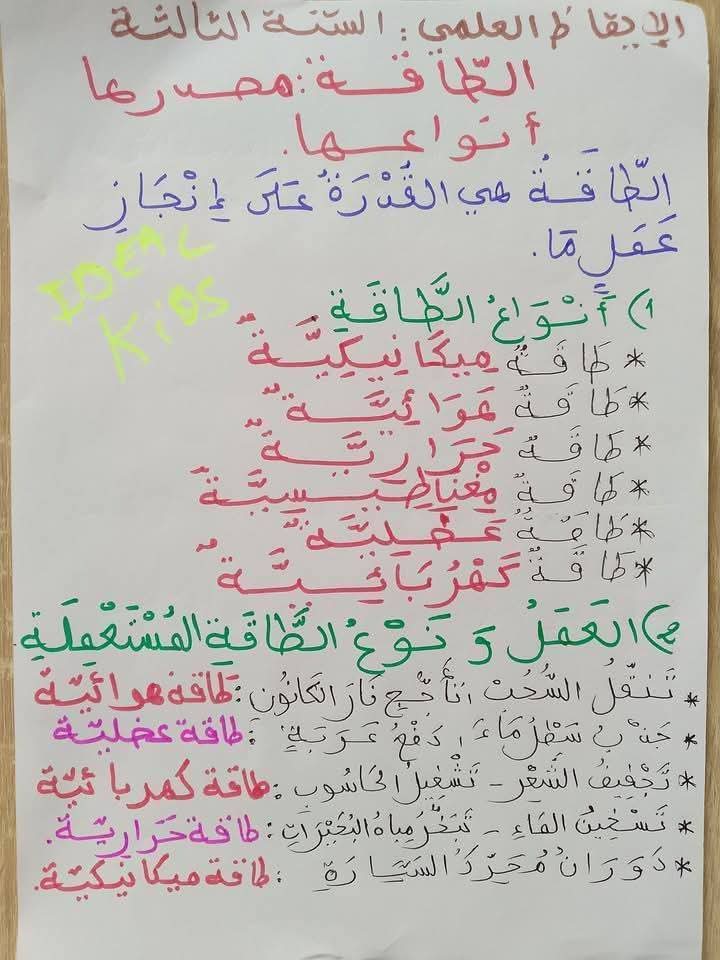 الإيقاظ العلمي: السنة الثالثة
الطّاقة: مصدرها
أنواعها.
الطّاقَةُ هي القُدْرَةُ عَلَى إِنْجَازِ
عَمَلٍ مَا.
IDEAL
KiDS
1) أَنْوَاعُ الطَّاقَةِ
* طَاقَةٌ مِيكَانِيكِيَّةٌ
* طَاقَةٌ هَوَائِيَّةٌ
* طَاقَةٌ حَرَارِيَّةٌ
* طَاقَةٌ مِغْنَاطِيسِيَّةٌ
* طَاقَةٌ عَضَلِيَّةٌ
* طَاقَةٌ كَهْرُبَائِيَّةٌ
2) العَمَلُ وَ نَوْعُ الطَّاقَةِ المُسْتَعْمَلَةِ
* تَنَقُّلُ السُّحُبْ، تَأَجُّجِ نَارَ الكَانُون: طاقة هوائيّة
* جَذْبُ سَطْلُ مَاءَ، دَفْعُ عَرَبَةٍ: طاقة عضليّة
* تَجْفِيفُ الشَّعْرِ - تَشْغِيلُ الحَاسُوبِ: طاقة كهربائيّة
* تَسْخِينُ المَاءِ - تَبَخُّرُ مِيَاهُ البُحَيْرَاتِ: طاقة حَرَاريّة.
* دَوَرَانُ مُحَرِّكُ السَّيَّارَةِ: طاقة ميكانيكيّة.